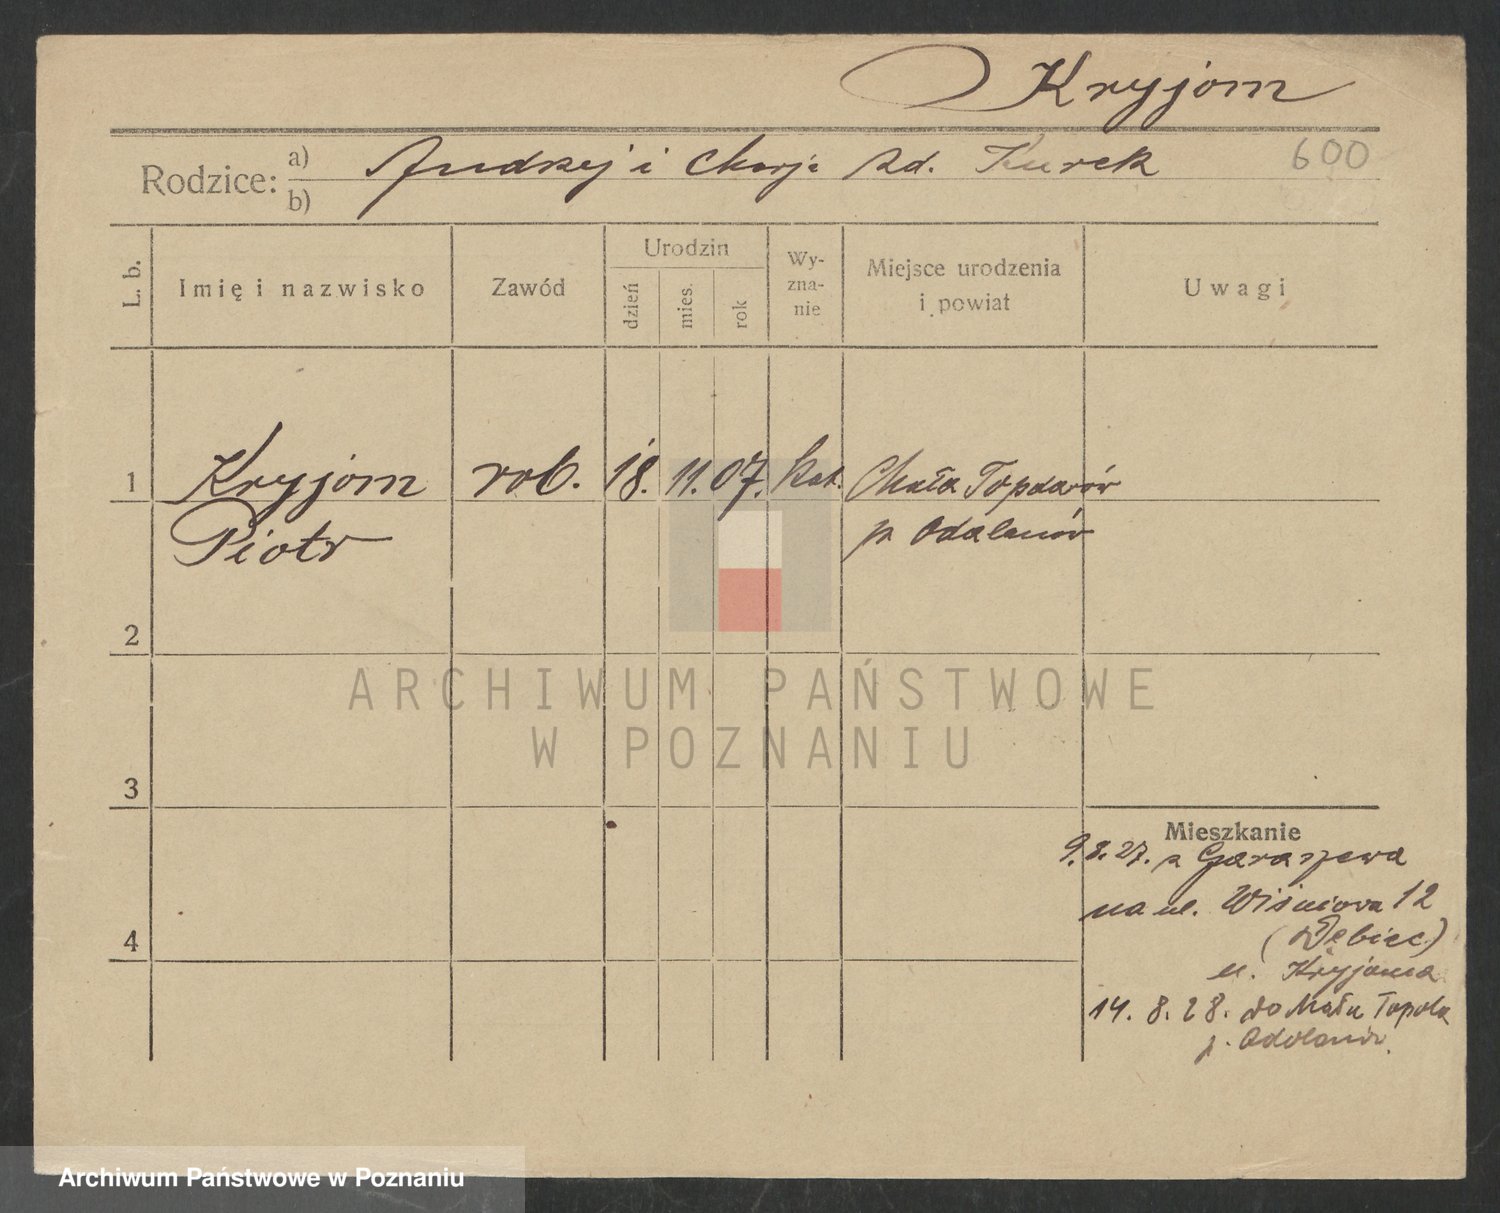 Kryjom
Rodzice: a) b) Andrzej i Marja zd. Kurek 600
L. b. Imię i nazwisko Zawód Urodzin dzień mies. rok Wyznanie Miejsce urodzenia i powiat Uwagi
1 Kryjom rob. 18. 11. 07. kat. Mała
Piotr p. Odolanów
2
ARCHIWUM PAŃSTWOWE
W POZNANIU
3
Mieszkanie
9.8.27. z Garaszewa
na ul. Wiśniowa 12
(Dębiec)
u. Kryjoma
4
14. 8. 28. do Mała Topola
p. Odolanów.
Archiwum Państwowe w Poznaniu